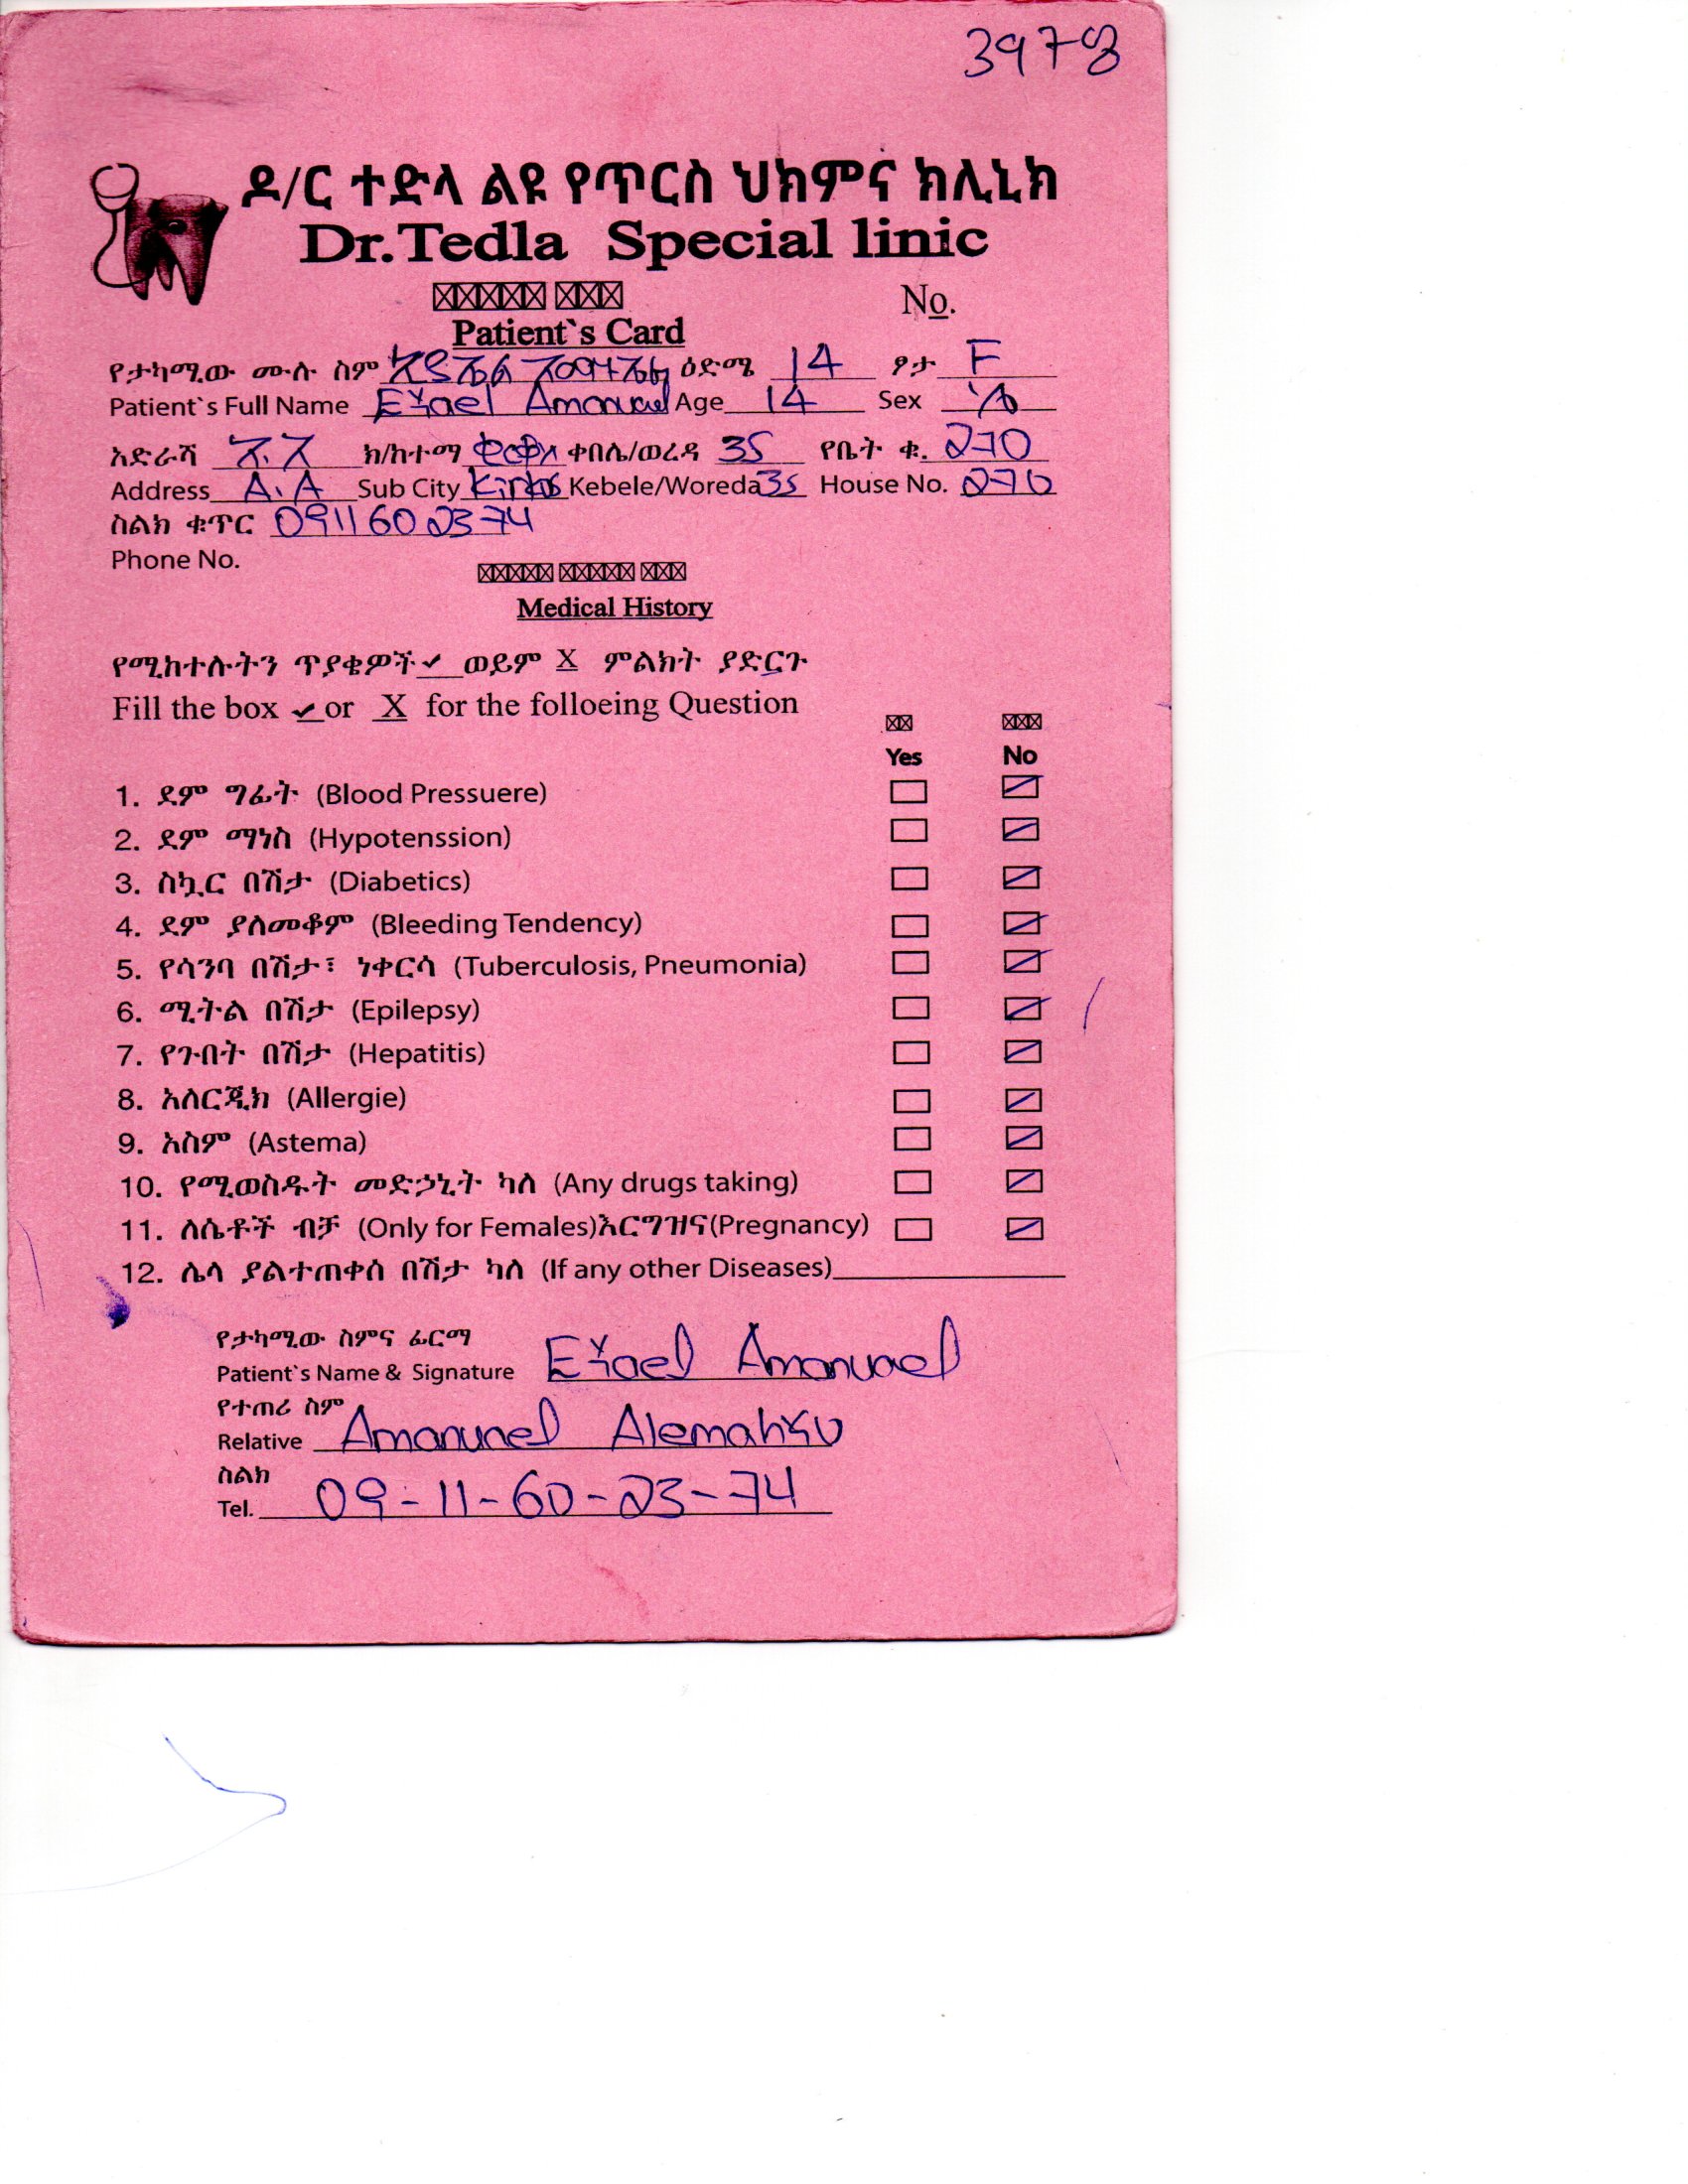 3978
ዶ/ር ተድላ ልዩ የጥርስ ህክምና ክሊኒክ
Dr.Tedla Special linic
No.
Patient`s Card
የታካሚው ሙሉ ስም ዕድሜ 14 ፆታ F
Patient`s Full Name Amanuel Age 14 Sex
አድራሻ አ.አ ክ/ከተማ ቀበሌ/ወረዳ 35 የቤት ቁ. 270
Address A.A Sub City Kirkos Kebele/Woreda 35 House No. 270
ስልክ ቁጥር 0911602374
Phone No.
Medical History
የሚከተሉትን ጥያቄዎች ✓ ወይም X ምልክት ያድርጉ
Fill the box ✓ or X for the folloeing Question
Yes No
1. ደም ግፊት (Blood Pressuere)
2. ደም ማነስ (Hypotenssion)
3. ስኳር በሽታ (Diabetics)
4. ደም ያለመቆም (Bleeding Tendency)
5. የሳንባ በሽታ፣ ነቀርሳ (Tuberculosis, Pneumonia)
6. ሚትል በሽታ (Epilepsy)
7. የጉበት በሽታ (Hepatitis)
8. አለርጂክ (Allergie)
9. አስም (Astema)
10. የሚወስዱት መድኃኒት ካለ (Any drugs taking)
11. ለሴቶች ብቻ (Only for Females)እርግዝና(Pregnancy)
12. ሌላ ያልተጠቀሰ በሽታ ካለ (If any other Diseases)
የታካሚው ስምና ፊርማ
Patient`s Name & Signature Amanuael
የተጠሪ ስም
Relative Amanunel
ስልክ
Tel. 09-11-60-23-74